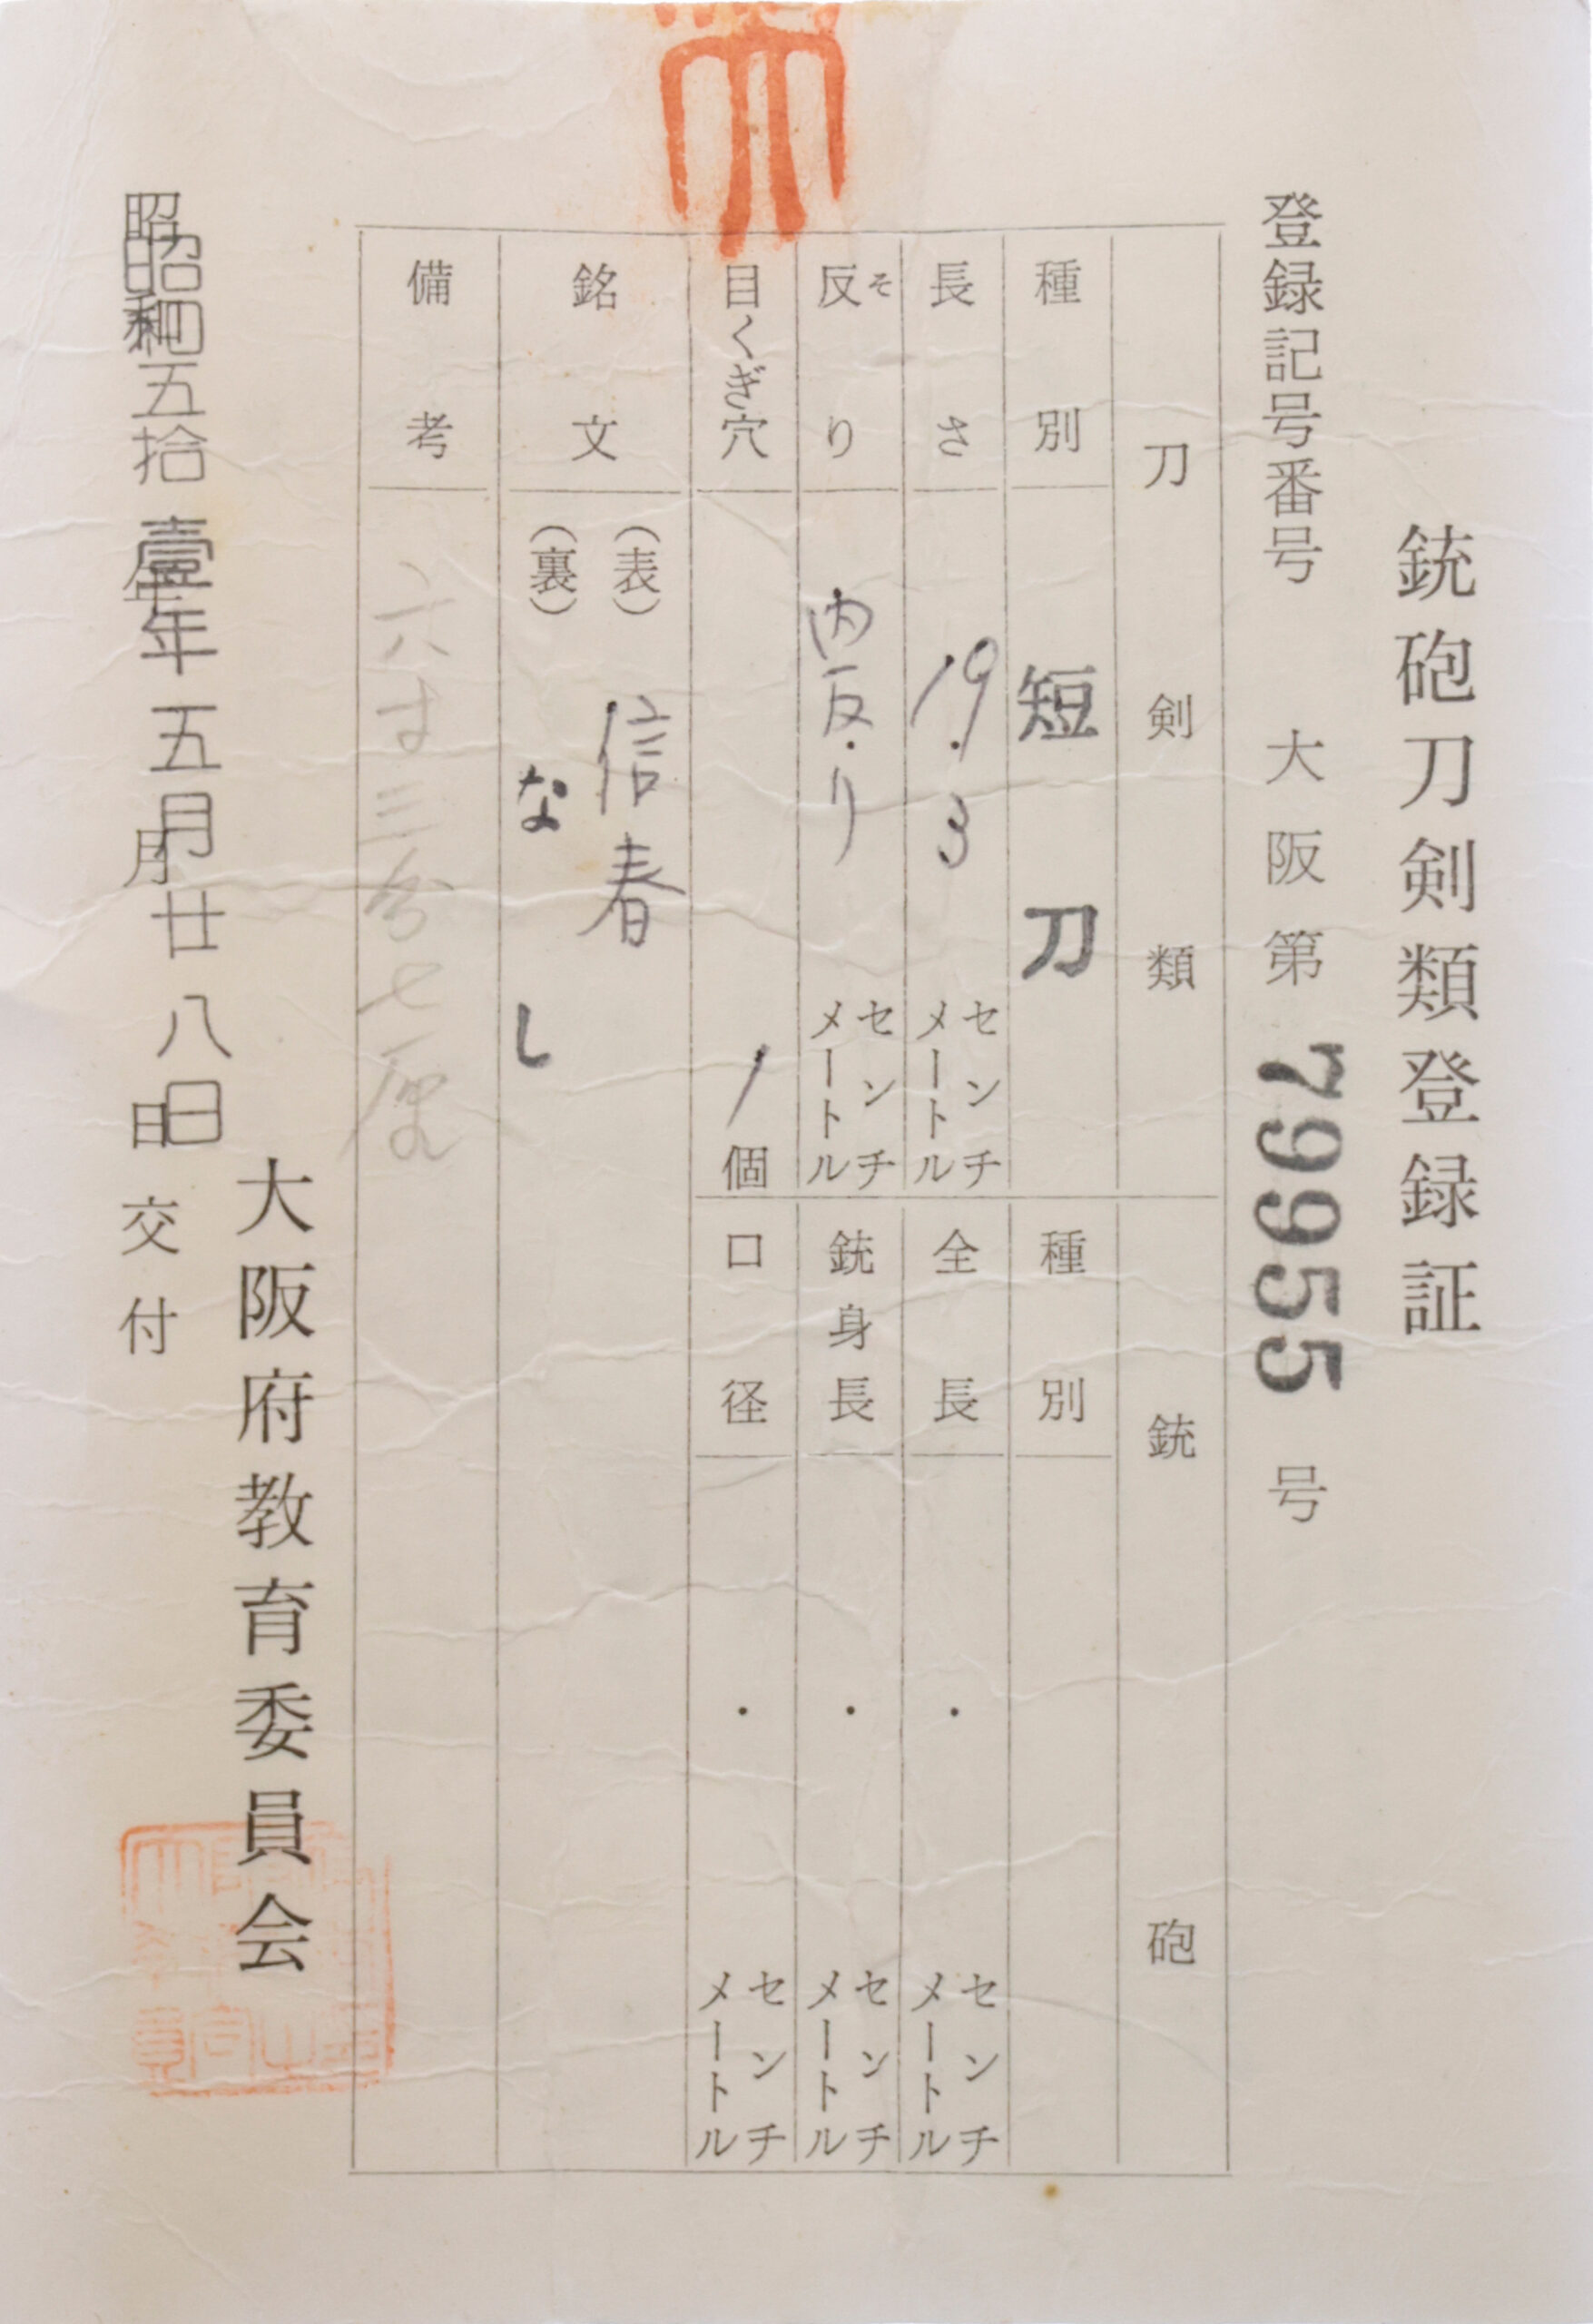 銃砲刀剣類登録証
登録記号番号 大阪第 79955 号
刀剣類
種別 短刀
長さ 19.3 センチメートル
反り 内反り センチメートル
そ
目くぎ穴 1個
銃砲
種別
全長 ・ センチメートル
銃身長 ・ センチメートル
口径 ・ センチメートル
銘文
(表) 信春
(裏) なし
備考 六寸三分七厘
大阪府教育委員会
昭和五拾壹年五月廿八日
昭和 年 月 日 交付